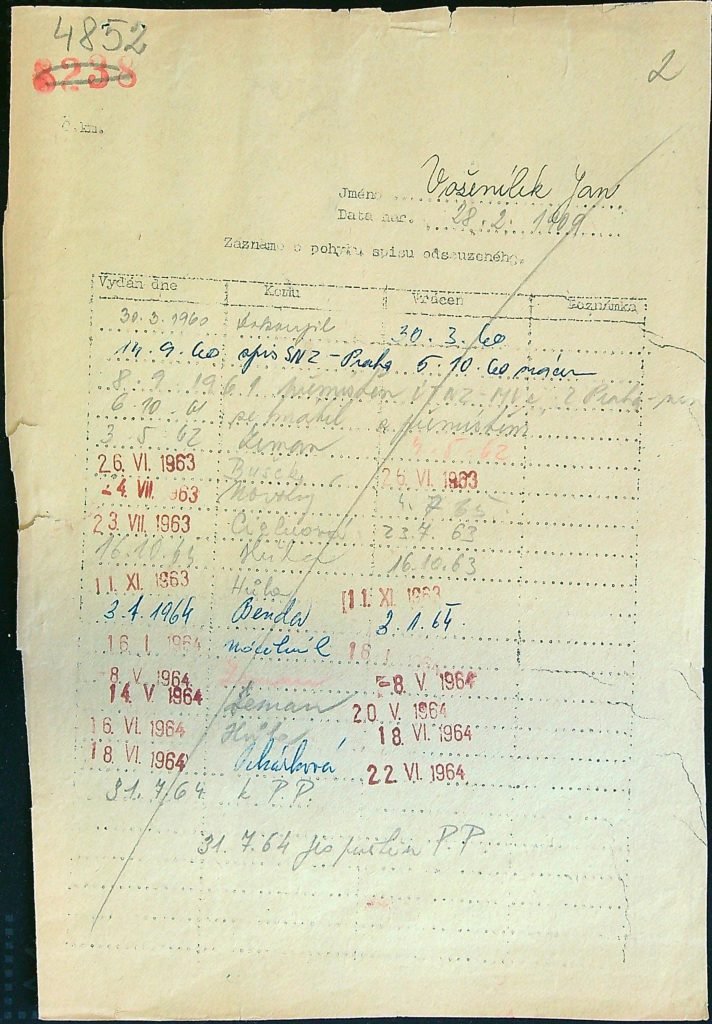 4852
8238
2
č.km.
Jméno Vošenílek Jan
Data nar. 28.2. 1909
Záznamo o pohybu spisu odsouzeného.
Vydán dne Komu Vrácen Poznámka
30.3.1960 30.3.60
14.9.60 spis SNZ-Praha 6.10.60 vrácen
8.9.1961 přemístěn Praha
6.10.61 se vrátil a přemístěn
3.5.62 Zeman 3.5.62
26. VI. 1963 26. VI. 1963
-4. VII. 1963 Novotný 4.7.63
23. VII. 1963 23.7.63
16.10.63 16.10.63
11. XI. 1963 Hůla 11. XI. 1963
3.1.1964 Benda 3.1.64.
16. I. 1964 16. I. 1964
-8. V. 1964 Zeman -8. V. 1964
14. V. 1964 Zeman 20. V. 1964
16. VI. 1964 Hůla 18. VI. 1964
18. VI. 1964 22. VI. 1964
31.7.64 k P.P.
31.7.64 P.P.